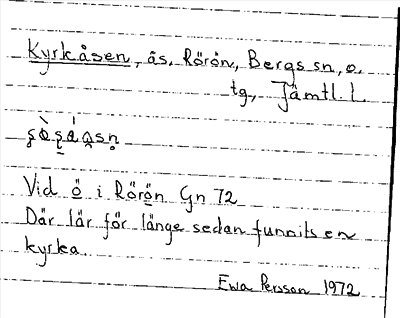 Kyrkåsen, ås, Rörön, Bergs sn, o.
tg., Jämtl. l.
Vid ö i Rörön Gn 72
Där lär för länge sedan funnits en
kyrka.
Ewa Persson 1972